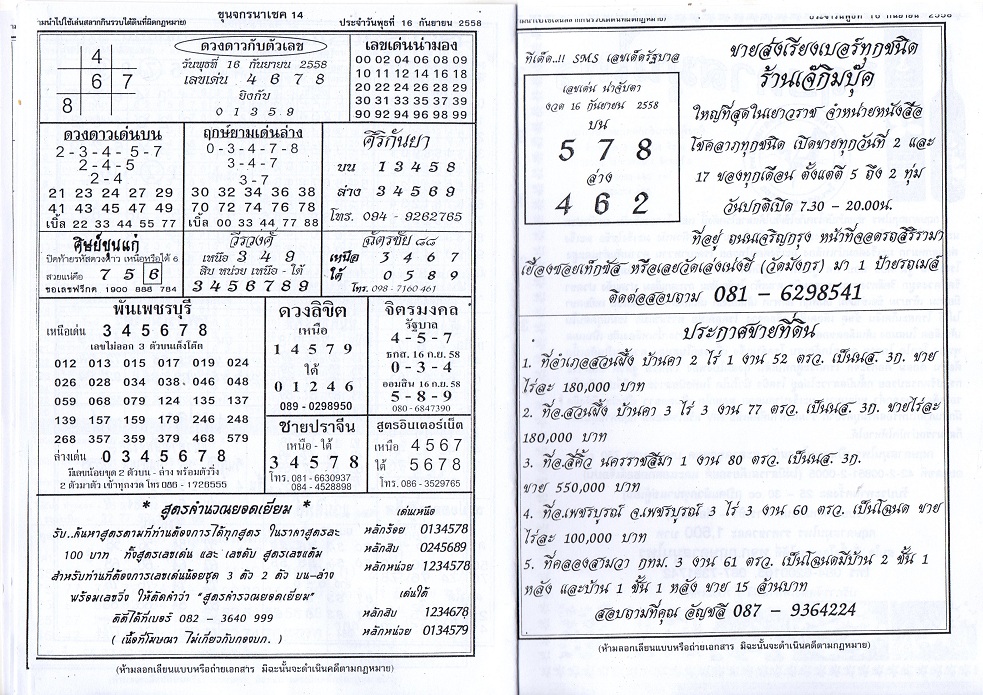 (มนำไปใช้เล่นสลากกินรวบได้ดินที่ผิดกฎหมาย)
ขุนจกรนาเชค 14
ประจำวันพุธที่ 16 กันยายน 2558
4
6 7
8
ดวงดาวกับตัวเลข
วันพุธที่ 16 กันยายน 2558
เลขเด่น 4 6 7 8
ยิงกับ
0 1 3 5 9
เลขเด่นน่ามอง
00 02 04 06 08 09
10 11 12 14 16 18
20 22 24 26 28 29
30 31 33 35 37 39
90 92 94 96 98 99
ดวงดาวเด่นบน
2-3-4-5-7
2-4-5
2-4
21 23 24 27 29
41 43 45 47 49
เบิ้ล 22 33 44 55 77
ฤกษ์ยามเด่นล่าง
0-3-4-7-8
3-4-7
3-7
30 32 34 36 38
70 72 74 76 78
เบิ้ล 00 33 44 77 88
ศิริกันยา
บน 1 3 4 5 8
ล่าง 3 4 5 6 9
โทร. 094 - 9262765
ศิษย์ขนแก่
ปิดท้ายรหัสดวงดาว เหนือหรือใต้ 6
สวยแน่คือ 7 5 6
ขอเลขฟรีกด 1900 888 784
วีรวงศ์
เหนือ 3 4 9
สิบ หน่วย เหนือ - ใต้
3 4 5 6 7 8 9
ฉัตรชัย ๘๘
เหนือ 3 4 6 7
ใต้ 0 5 8 9
โทร. 098 - 7160 461
พันเพชรบุรี
เหนือเด่น 3 4 5 6 7 8
เลขไม่ออก 3 ตัวบนเต็งโต๊ด
012 013 015 017 019 024
026 028 034 038 046 048
059 068 079 124 135 137
139 157 159 179 246 248
268 357 359 379 468 579
ล่างเด่น 0 3 4 5 6 7 8
มีเลขน้อยชุด 2 ตัวบน - ล่าง พร้อมตัววิ่ง
2 ตัวมาตัว เข้าทุกงวด โทร 086 - 1728555
ดวงลิขิต
เหนือ
1 4 5 7 9
ใต้
0 1 2 4 6
089 - 0298950
จิตรมงคล
รัฐบาล
4-5-7
ธกส. 16 ก.ย. 58
0-3-4
ออมสิน 16 ก.ย. 58
5-8-9
080 - 6847390
ชายปราจีน
เหนือ - ใต้
3 4 5 7 8
โทร. 081 - 6630937
084 - 4528898
สูตรอินเตอร์เน็ต
เหนือ 4 5 6 7
ใต้ 5 6 7 8
โทร. 086 - 3529765
* สูตรคำนวณยอดเยี่ยม *
รับ..ค้นหาสูตรตามที่ท่านต้องการได้ทุกสูตร ในราคาสูตรละ
100 บาท ทั้งสูตรเลขเด่น และ เลขดับ สูตรเลขแต้ม
สำหรับท่านที่ต้องการเลขเด่นน้อยชุด 3 ตัว 2 ตัว บน-ล่าง
พร้อมเลขวิ่ง ให้ตัดคำว่า "สูตรคำรวณยอดเยี่ยม"
ติดได้ที่เบอร์ 082 - 3640 999
( เนื้อที่โฆษณา ไม่เกี่ยวกับกองบก. )
เด่นเหนือ
หลักร้อย 0134578
หลักสิบ 0245689
หลักหน่วย 1234578
เด่นใต้
หลักสิบ 1234678
หลักหน่วย 0134579
(ห้ามลอกเลียนแบบหรือถ่ายเอกสาร มิฉะนั้นจะดำเนินคดีตามกฎหมาย)
ทีเด็ด..!! SMS เลขเด็ดรัฐบาล
เลขเด่น น่าจับตา
งวด 16 กันยายน 2558
บน
5 7 8
ล่าง
4 6 2
ขายส่งเรียงเบอร์ทุกชนิด
ร้านเจ๊กิมบุ๊ค
ใหญ่ที่สุดในเยาวราช จำหน่ายหนังสือ
โชคลาภทุกชนิด เปิดขายทุกวันที่ 2 และ
17 ของทุกเดือน ตั้งแต่ตี 5 ถึง 2 ทุ่ม
วันปกติเปิด 7.30 - 20.00น.
ที่อยู่ ถนนเจริญกรุง หน้าที่จอดรถสิริรามา
เยื้องซอยเท็กซัส หรือเลยวัดเล่งเน่งยี่ (วัดมังกร) มา 1 ป้ายรถเมล์
ติดต่อสอบถาม 081 - 6298541
ประกาศขายที่ดิน
1. ที่อำเภอสวนผึ้ง บ้านคา 2 ไร่ 1 งาน 52 ตรว. เป็นนส. 3ก. ขาย
ไร่ละ 180,000 บาท
2. ที่อ.สวนผึ้ง บ้านคา 3 ไร่ 3 งาน 77 ตรว. เป็นนส. 3ก. ขายไร่ละ
180,000 บาท
3. ที่อ.สีคิ้ว นครราชสีมา 1 งาน 80 ตรว. เป็นนส. 3ก.
ขาย 550,000 บาท
4. ที่อ.เพชรบูรณ์ จ.เพชรบูรณ์ 3 ไร่ 3 งาน 60 ตรว. เป็นโฉนด ขาย
ไร่ละ 100,000 บาท
5. ที่คลองสามวา กทม. 3 งาน 61 ตรว. เป็นโฉนดมีบ้าน 2 ชั้น 1
หลัง และบ้าน 1 ชั้น 1 หลัง ขาย 15 ล้านบาท
สอบถามที่คุณ อัญชลี 087 - 9364224
(ห้ามลอกเลียนแบบหรือถ่ายเอกสาร มิฉะนั้นจะดำเนินคดีตามกฎหมาย)